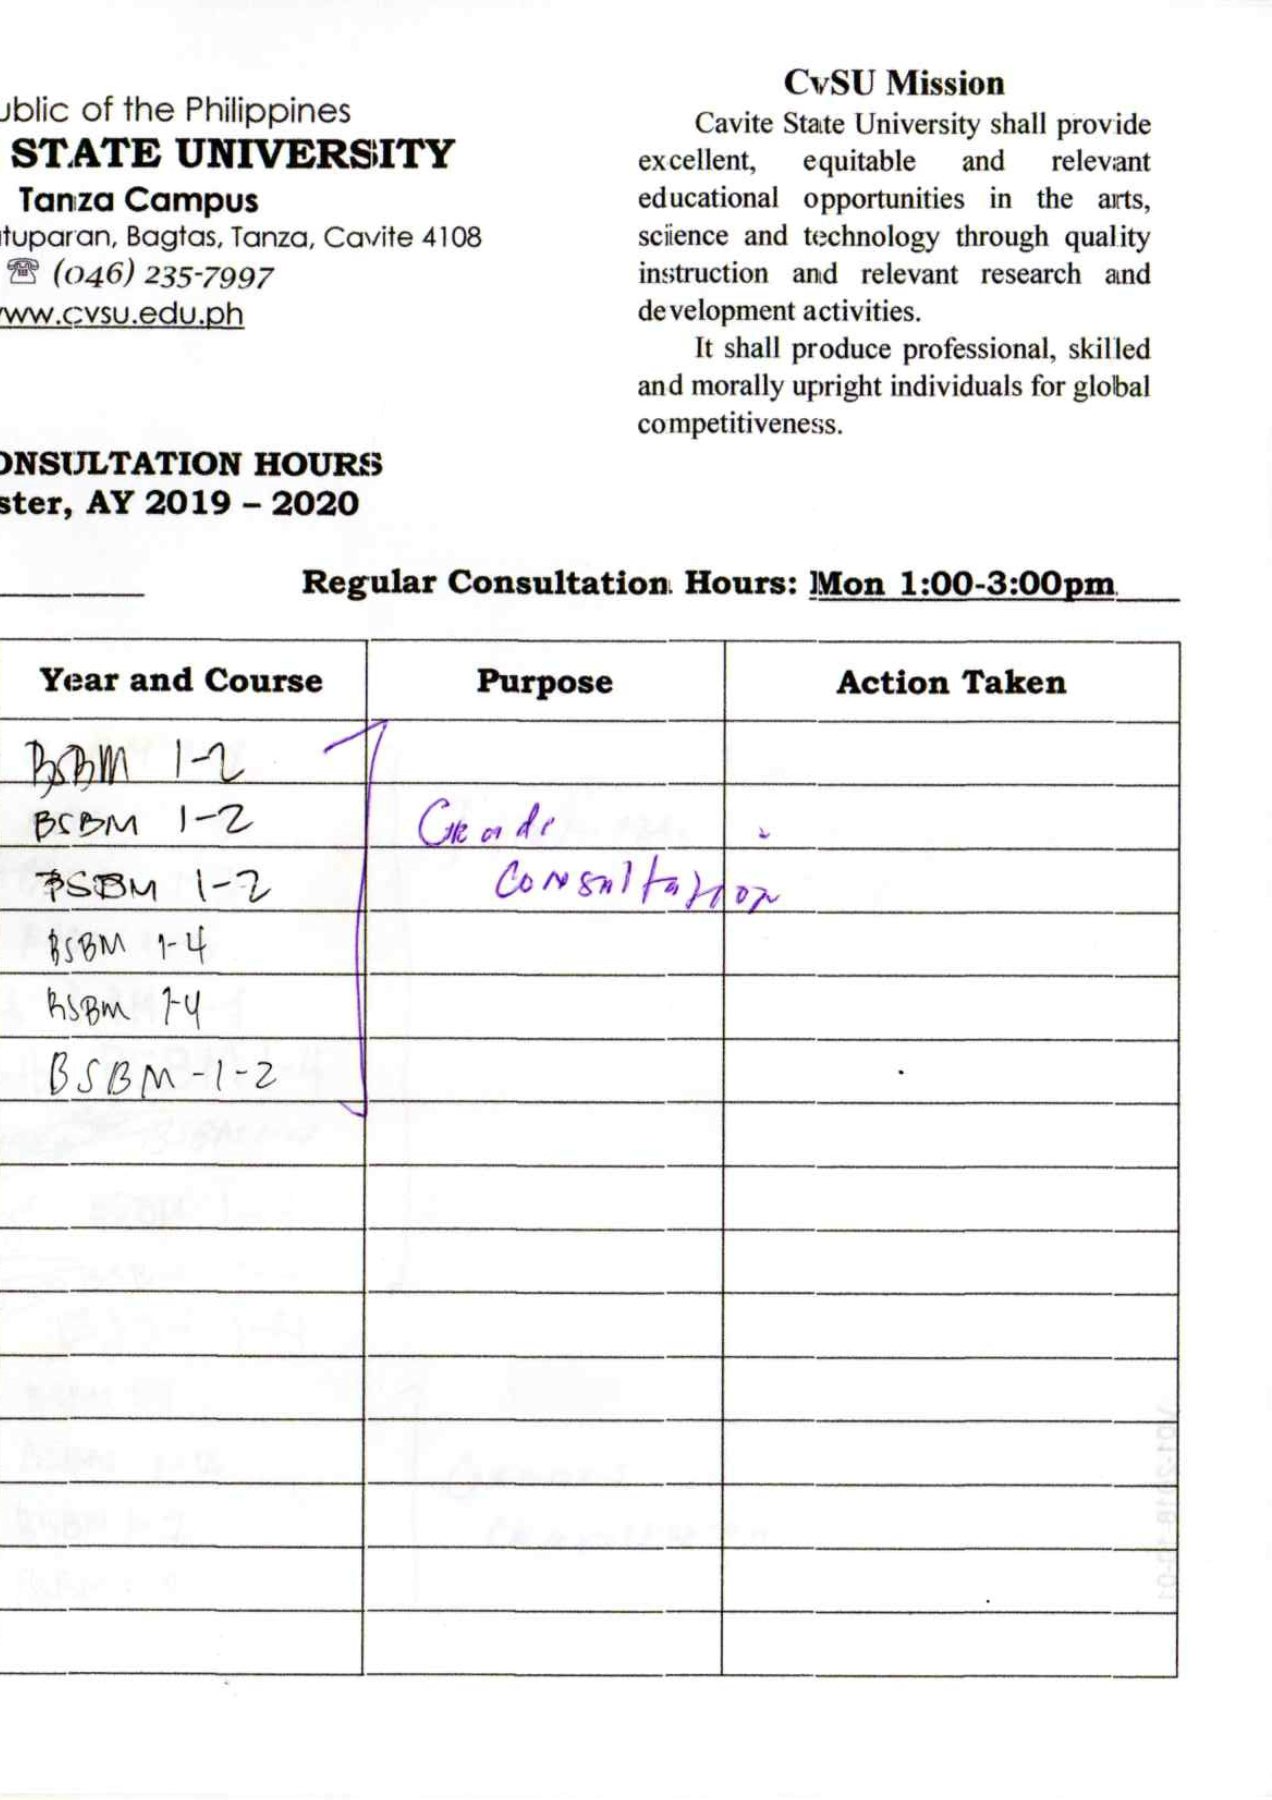 ublic of the Philippines
STATE UNIVERSITY
Tanza Campus
tuparan, Bagtas, Tanza, Cavite 4108
☎ (046) 235-7997
www.cvsu.edu.ph
CvSU Mission
Cavite State University shall provide
excellent, equitable and relevant
educational opportunities in the arts,
science and technology through quality
instruction and relevant research and
development activities.
It shall produce professional, skilled
and morally upright individuals for global
competitiveness.
ONSULTATION HOURS
ster, AY 2019 – 2020
Regular Consultation Hours: Mon 1:00-3:00pm
Year and Course Purpose Action Taken
BSBM 1-2
BSBM 1-2 Grade
BSBM 1-2 Consultation
BSBM 1-4
BSBM 1-4
BSBM-1-2